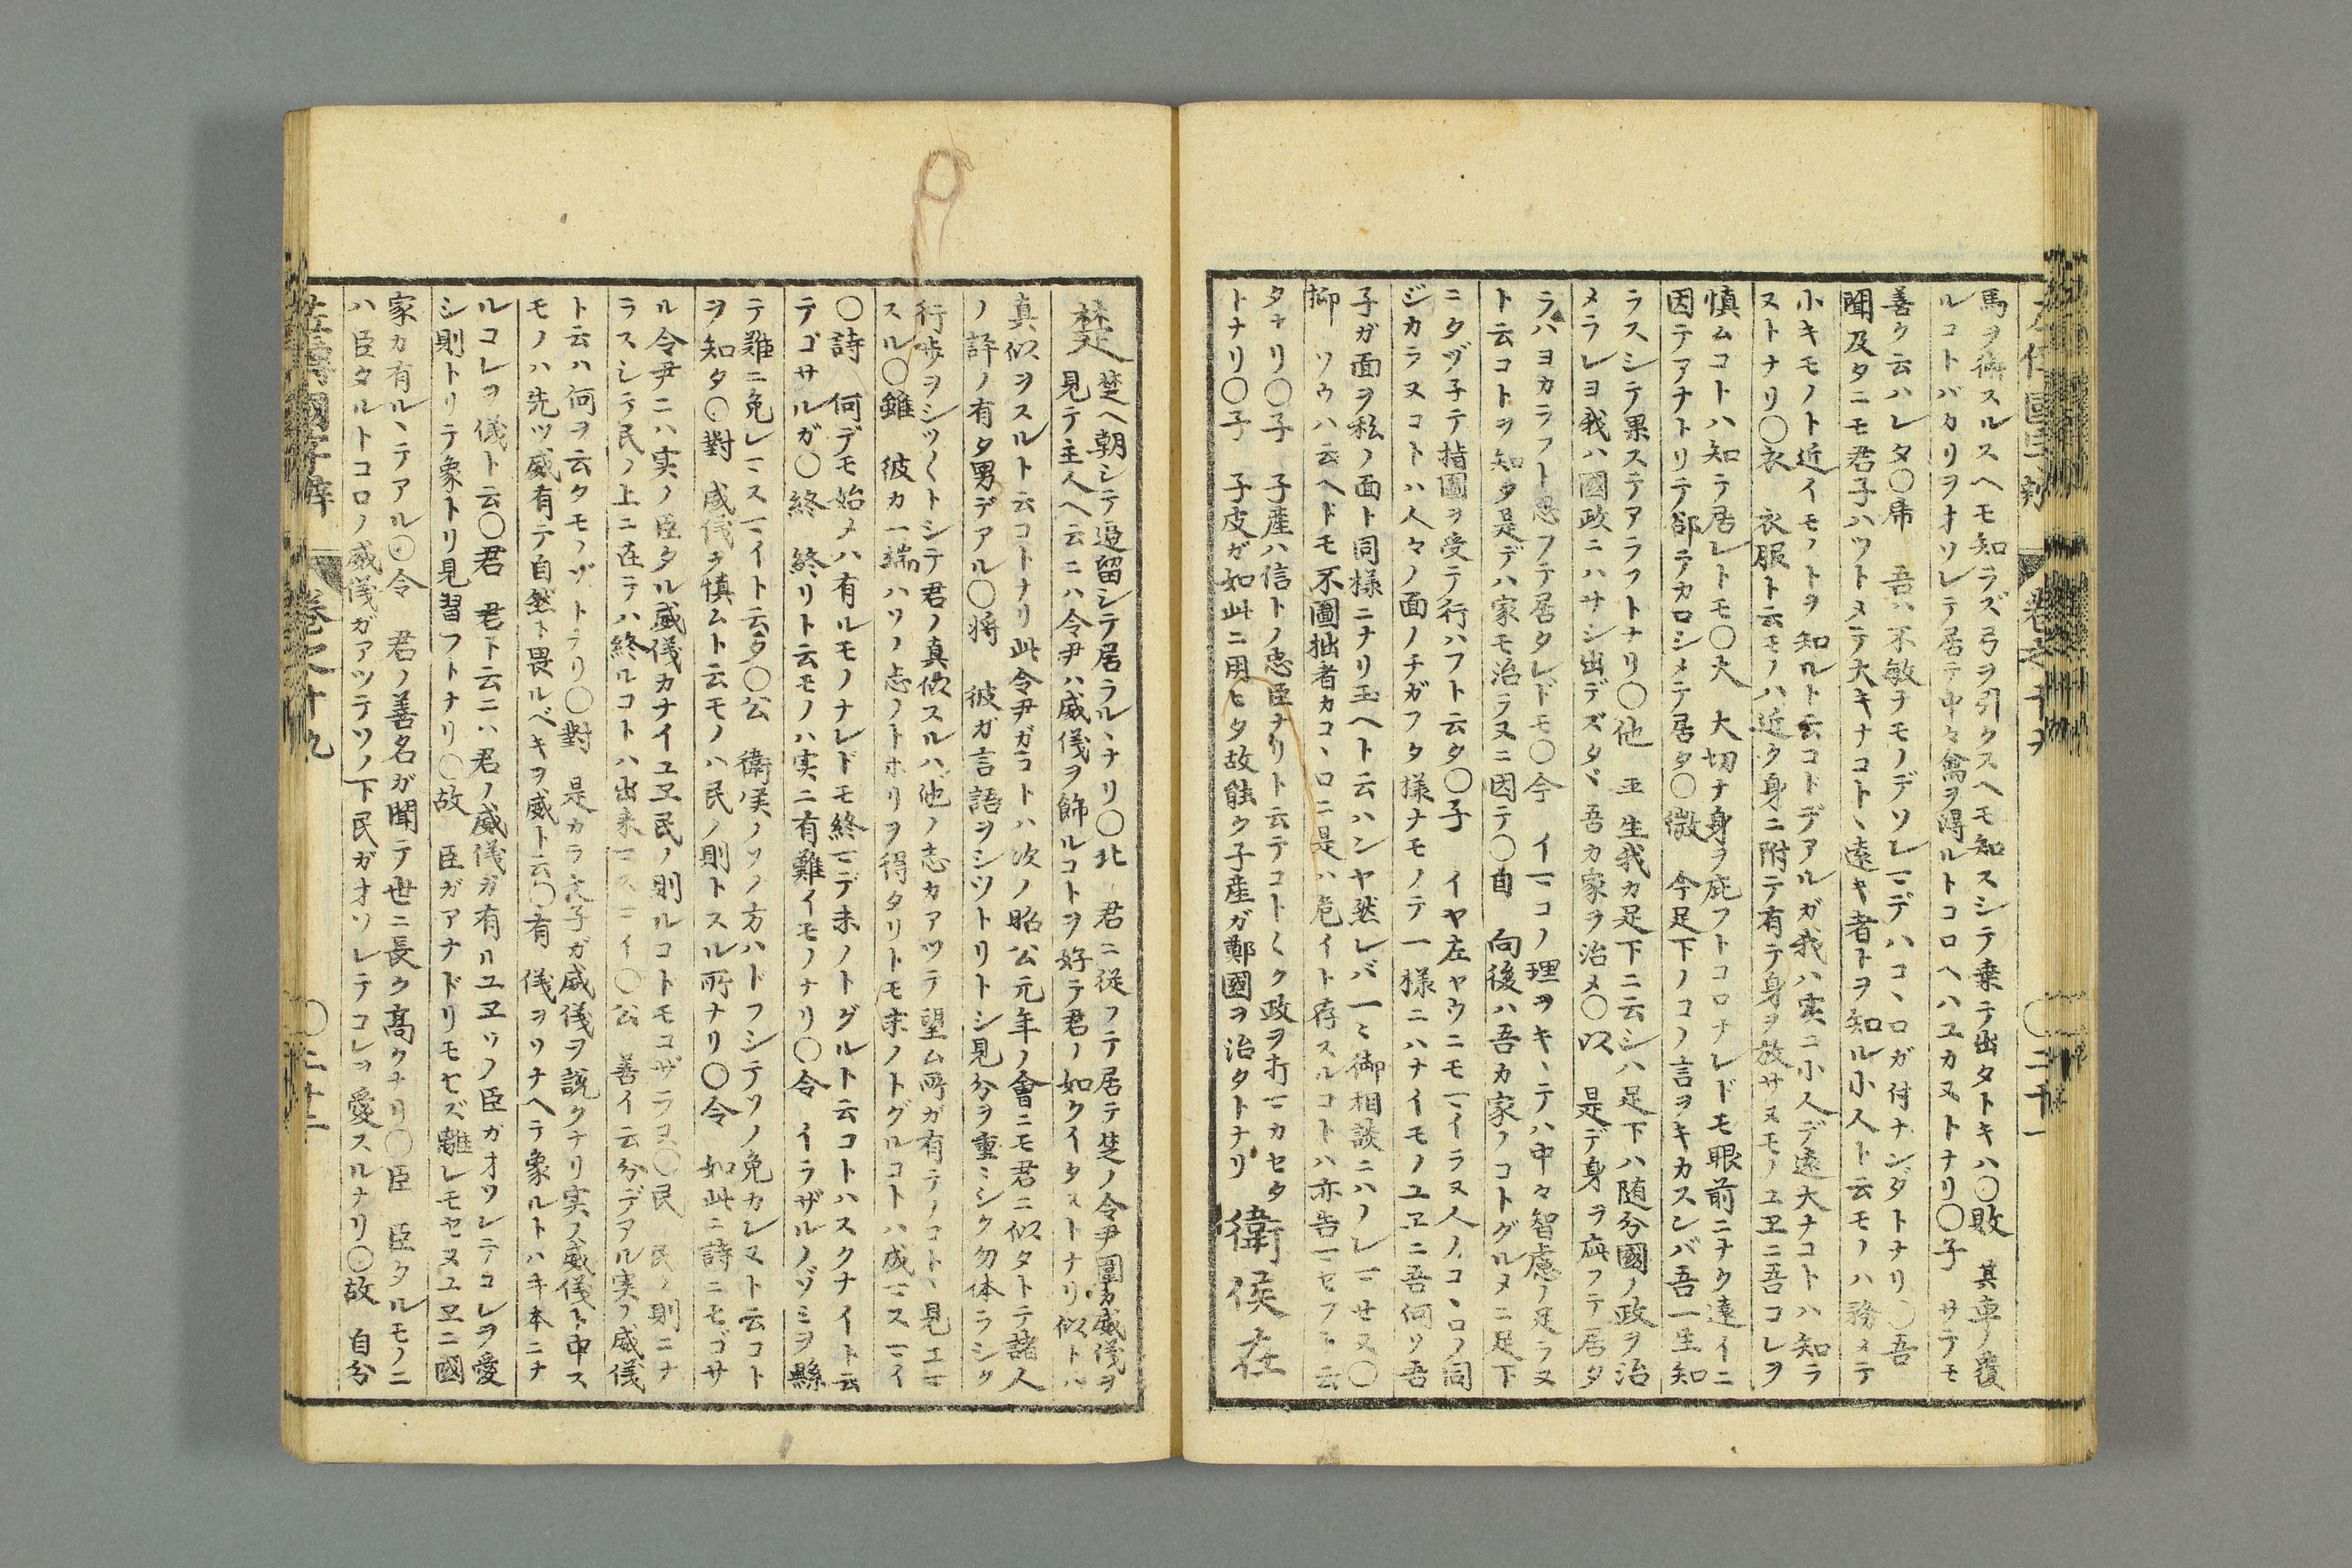 馬ヲ御スルスヘモ知ラズ弓ヲ引クスヘモ知スシテ乗テ出タトキハ〇敗 其車ノ覆
ルコトバカリヲオソレテ居テ中々禽ヲ得ルトコロヘハユカヌトナリ〇子 サテモ
善ク云ハレタ〇帯 吾ハ不敏ナモノデソレマデハコヽロガ付ナンダトナリ〇吾
聞及タニモ君子ハツトメテ大キナコトヽ遠キ者トヲ知ル小人ト云モノハ務メテ
小キモノト近イモノトヲ知ルト云コトデアルガ我ハ実ニ小人デ遠大ナコトハ知ラ
ストナリ〇衣 衣服ト云モノハ近ク身ニ附テ有テ身ヲ放サヌモノユヱニ吾コレヲ
慎ムコトハ知テ居レトモ〇大 大切ナ身ヲ庇フトコロナレドモ眼前ニナク遠イニ
因テアナトリテ郤テカロシメテ居タ〇微 今足下ノコノ言ヲキカスンバ吾一生知
ラスシテ果ステアラフトナリ〇他 平生我カ足下ニ云シハ足下ハ随分國ノ政ヲ治
メラレヨ我ハ國政ニハサシ出デズタヾ吾カ家ヲ治メ〇以 是デ身ヲ庇フテ居タ
ラハヨカラフト思フテ居タレドモ〇今 イマコノ理ヲキヽテハ中々智慮ノ足ラヌ
ト云コトヲ知タ是デハ家モ治ラヌニ因テ〇自 向後ハ吾カ家ノコトグルメニ足下
ニタヅ子テ指圖ヲ受テ行ハフト云タ〇子 イヤ左ヤウニモマイラヌ人ノコヽロノ同
ジカラヌコトハ人々ノ面ノチガフタ様ナモノテ一様ニハナイモノユヱニ吾何ソ吾
子ガ面ヲ私ノ面ト同様ニナリ玉ヘト云ハンヤ然レバ一々御相談ニハノレマセヌ〇
抑 ソウハ云ヘドモ不圖拙者カコヽロニ是ハ危イト存スルコトハ亦告マセフト云
タナリ〇子 子産ハ信トノ忠臣ナリト云テコトく政ヲ打マカセタ
トナリ〇子 子皮ガ如此ニ用ヒタ故能ク子産ガ鄭國ヲ治タトナリ 衛侯在
楚 楚ヘ朝シテ逗留シテ居ラルヽナリ〇北 君ニ従フテ居テ楚ノ令尹圍カ威儀ヲ
見テ主人ヘ云ニハ令尹ハ威儀ヲ飾ルコトヲ好テ君ノ如クイタストナリ似トハ
真似ヲスルト云コトナリ此令尹ガコトハ次ノ昭公元年ノ會ニモ君ニ似タトテ諸人
ノ評ノ有タ男デアル〇将 彼ガ言語ヲシツトリトシ見分ヲ重ミシク勿体ラシク
行歩ヲシツくトシテ君ノ真似スルハ他ノ志カアツテ望ム所ガ有テノコトヽ見エマ
スル〇雖 彼カ一端ハソノ志ノトホリヲ得タリトモ末ノトグルコトハ成マスマイ
〇詩 何デモ始メハ有ルモノナレドモ終マデ末ノトグルト云コトハスクナイト云
テゴサルガ〇終 終リト云モノハ実ニ有難イモノナリ〇令 イラザルノゾミヲ縣
テ難ニ免レマスマイト云タ〇公 衛侯ノソノ方ハドフシテソノ免カレヌト云コト
ヲ知タ〇對 威儀ヲ慎ムト云モノハ民ノ則トスル所ナリ〇令 如此ニ詩ニモゴサ
ル令尹ニハ実ノ臣タル威儀カナイユヱ民ノ則ルコトモコザラヌ〇民 民ノ則ニナ
ラスシテ民ノ上ニ在テハ終ルコトハ出来マスマイ〇公 善イ云分デアル実ノ威儀
ト云ハ何ヲ云タモノゾトナリ〇對 是カラ文子ガ威儀ヲ説クナリ実ノ威儀ト申ス
モノハ先ツ威有テ自然ト畏ルベキヲ威ト云〇有 儀ヲソナヘテ象ルトハキ本ニナ
ルコレヲ儀ト云〇君 君ト云ニハ君ノ威儀ガ有ルユヱソノ臣ガオソレテコレヲ愛
シ則トリテ象トリ見習フトナリ〇故 臣ガアナドリモセズ離レモセヌユヱニ國
家カ有ルヽテアル〇令 君ノ善名ガ聞テ世ニ長ク高クナリ〇臣 臣タルモノニ
ハ臣タルトコロノ威儀ガアツテソノ下民ガオソレテコレヲ愛スルナリ〇故 自分
左傳國字辯 巻之十九 〇二十二